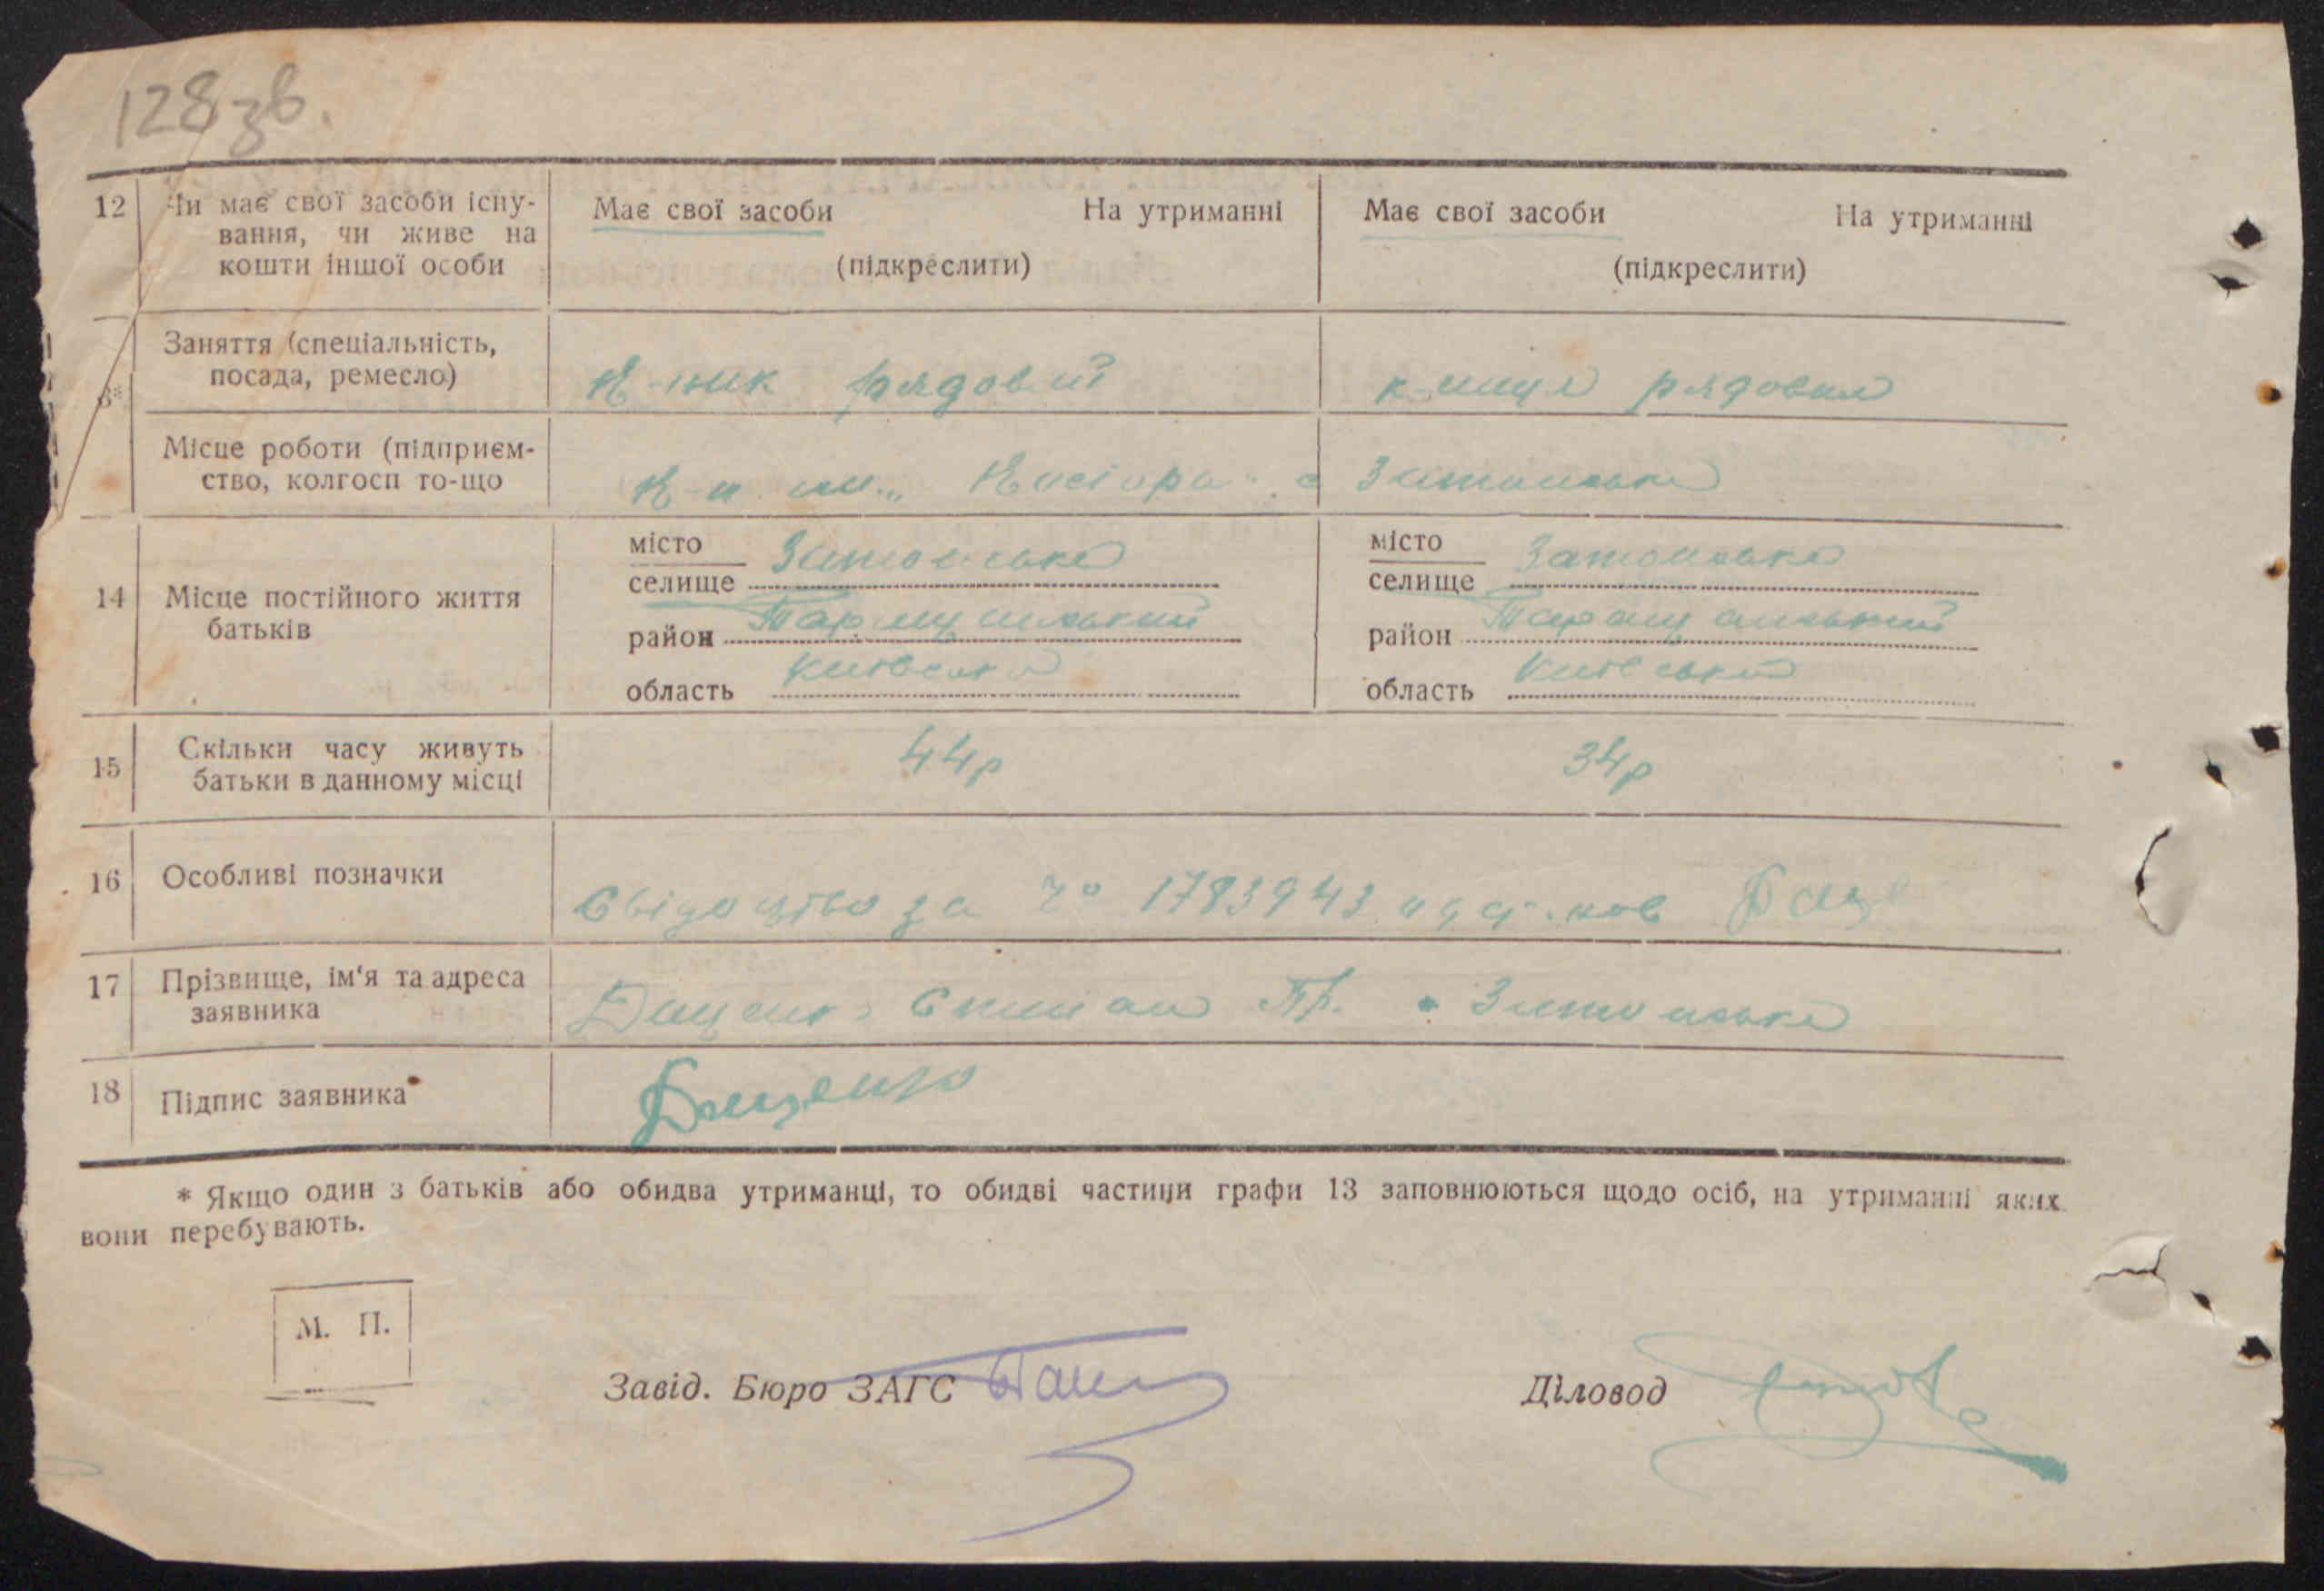 128зв.
12 Чи має свої засоби існу-
вання, чи живе на
кошти іншої особи
Має свої засоби На утриманні
(підкреслити)
Має свої засоби На утриманні
(підкреслити)
Заняття (спеціальність,
посада, ремесло)
К-ник рядовий
к-ниця рядовая
3*
Місце роботи (підприєм-
ство, колгосп то-що
К-п им. „Косіора" с Затонське
14 Місце постійного життя
батьків
місто
селище Затонське
район Таращанський
область Київська
місто
селище Затонське
район Таращанський
область Київська
15 Скільки часу живуть
батьки в данному місці
44р
34р
16 Особливі позначки
Свідоцтво за № 1783943
17 Прізвище, ім'я та адреса
заявника
Даценко Степан с Затонське
18 Підпис заявника
Даценко
* Якщо один з батьків або обидва утриманці, то обидві частини графи 13 заповнюються щодо осіб, на утриманні яких
вони перебувають.
М. П.
Завід. Бюро ЗАГС
Діловод